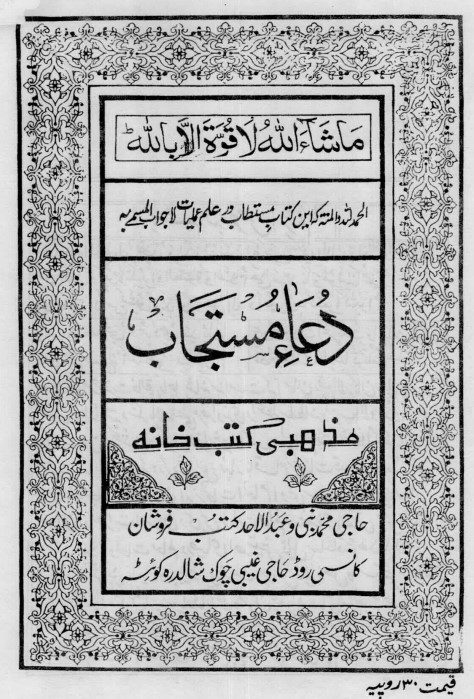 مَاشَاءَ اللّٰهُ لَا قُوَّةَ اِلَّا بِاللّٰهِ ط
الحمد لله والمنة کہ این کتاب مستطاب در علم عملیات لاجواب المسمے بہ
دُعَاءِ مُسْتَجَاب
مذهبی کتب خانه
حاجی محمد نبی و عبدُ الاحد کتب فروشان
کانسی روڈ حاجی غیبی چوک شالدرہ کوئٹہ
قیمت ۳۰ روپیہ